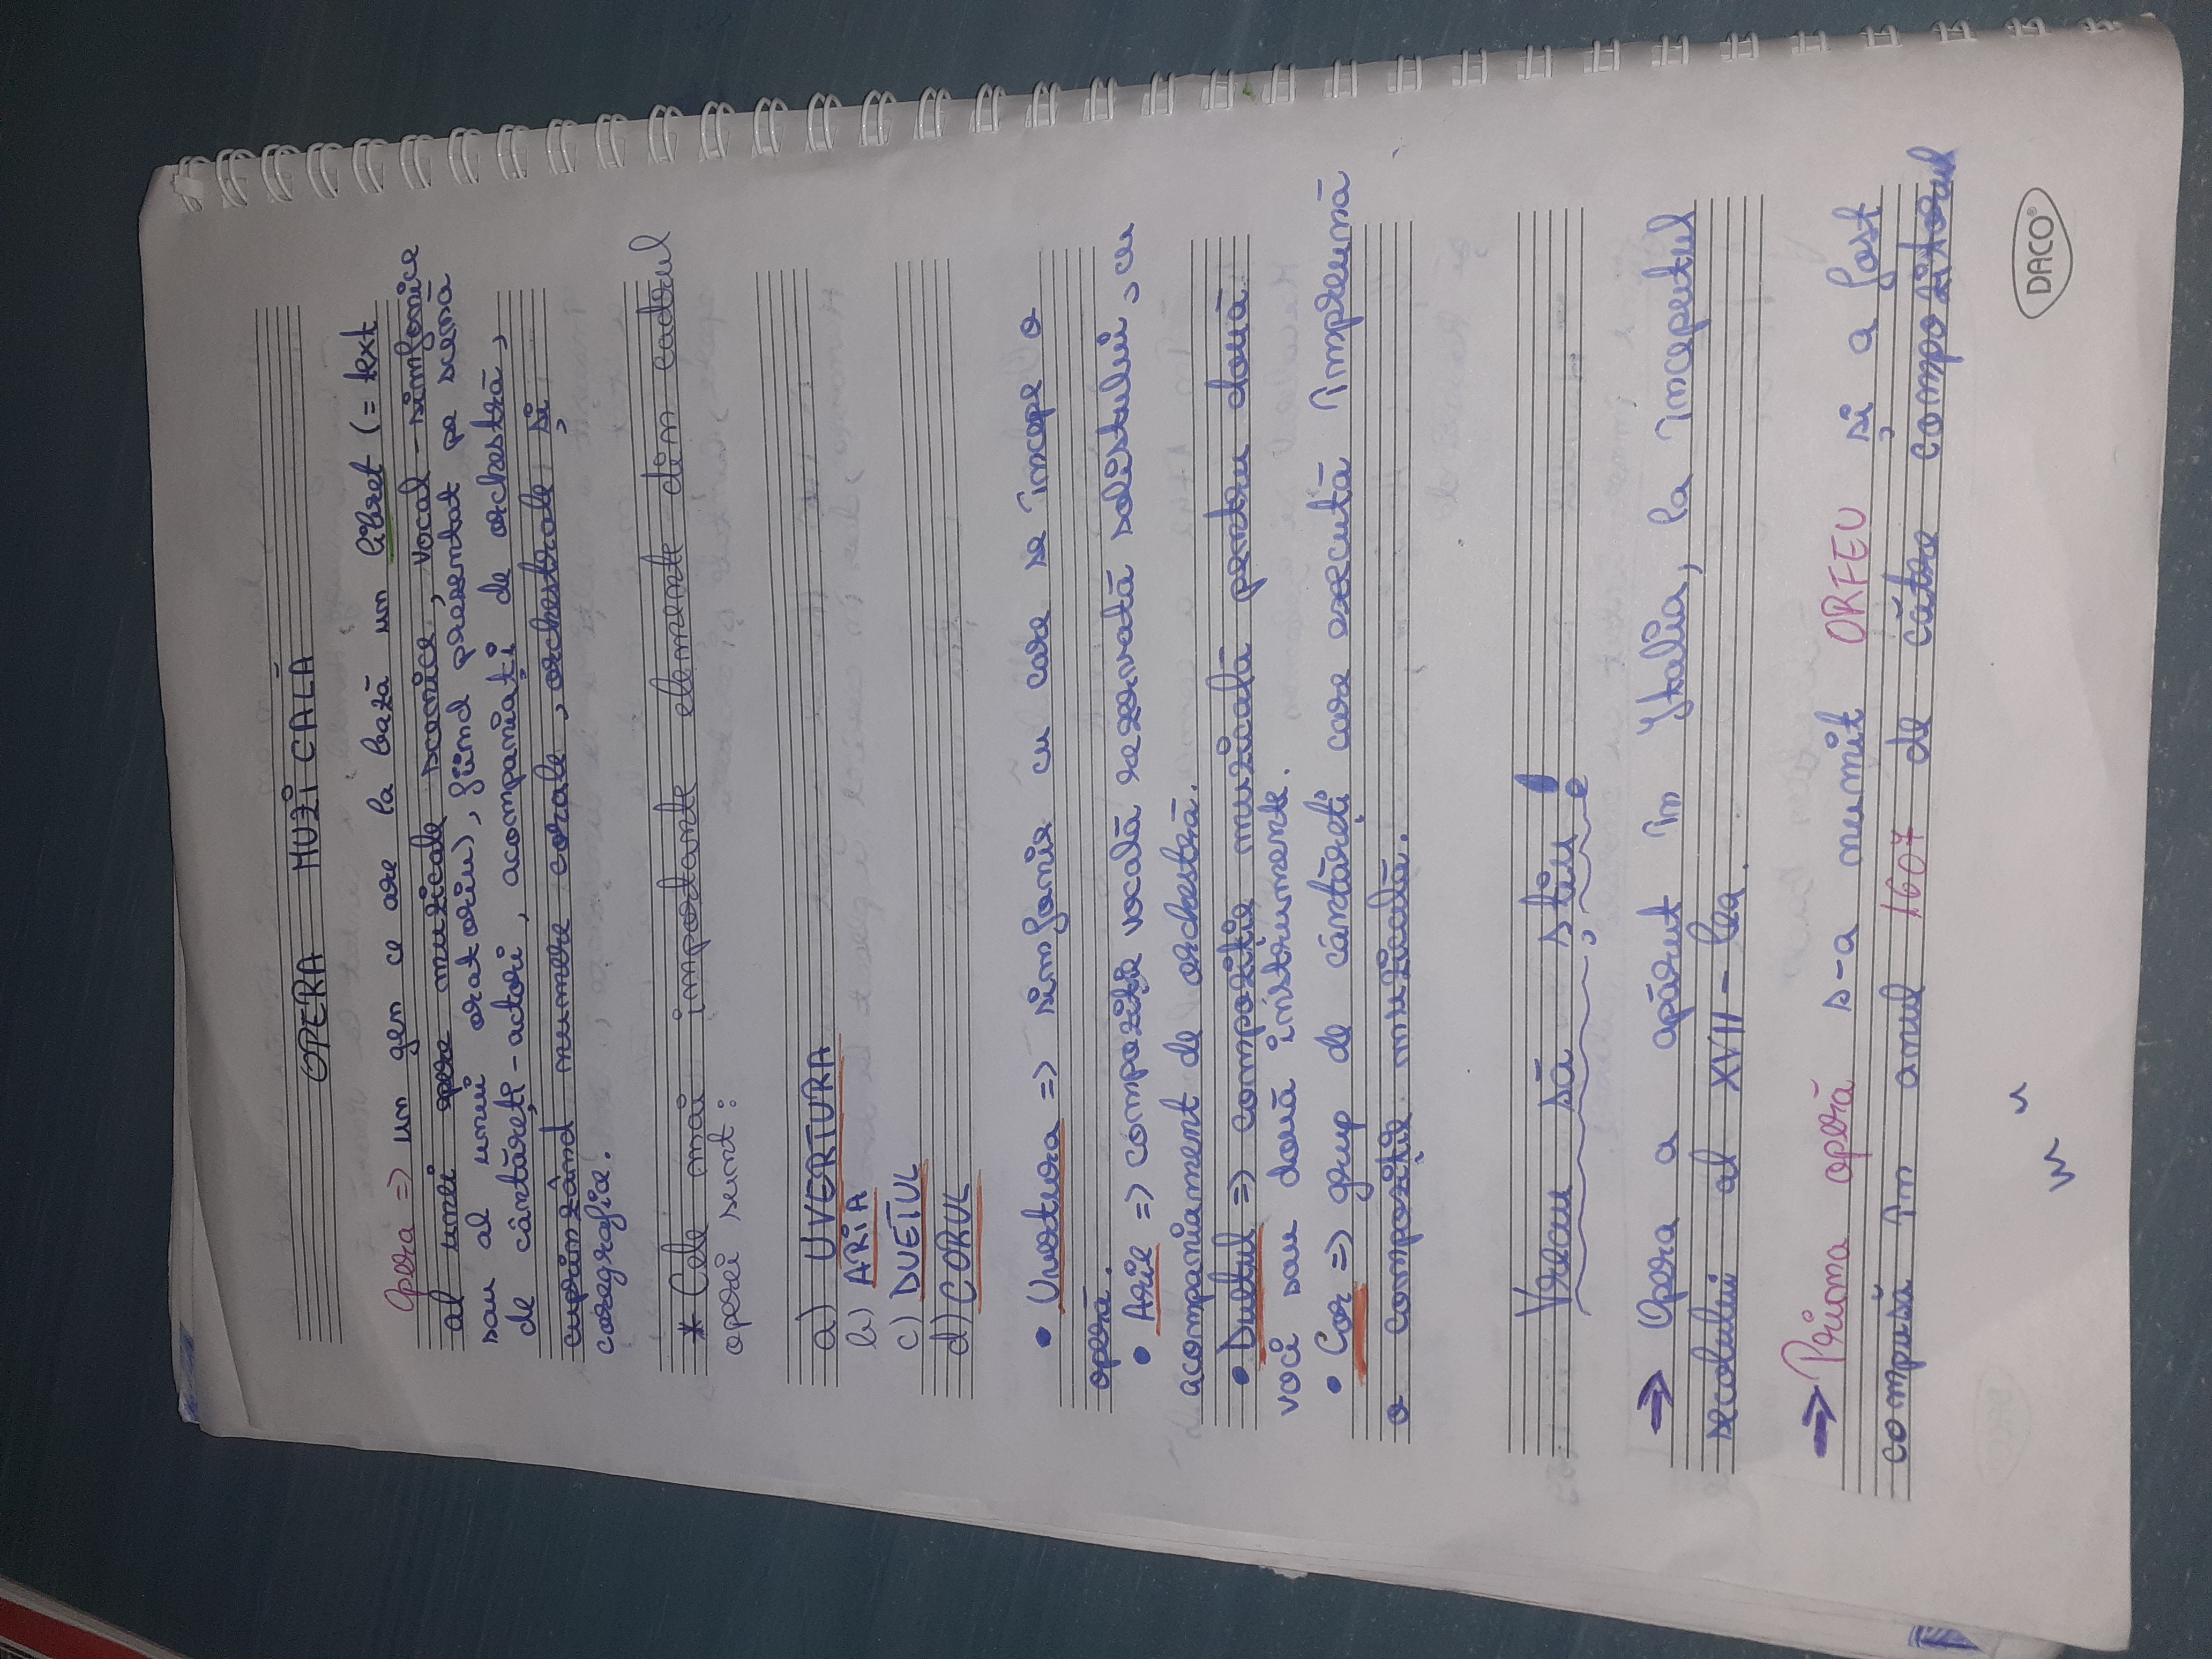 OPERA MUZICALĂ
Opera => un gen ce are la bază un libret (= text
al unei opere muzicale scenice, vocal-simfonice
sau al unui oratoriu), fiind prezentat pe scenă
de cântăreți-actori, acompaniați de orchestră,
cuprinzând numere corale, orchestrale și
coregrafice.
* Cele mai importante elemente din cadrul
operei sunt:
a) UVERTURA
b) ARIA
c) DUETUL
d) CORUL
• Uvertura => simfonia cu care se începe o
operă.
• Arie => compoziție vocală rezervată solistului, cu
acompaniament de orchestră.
• Duetul => compoziție muzicală pentru două
voci sau două instrumente.
• Cor => grup de cântăreți care execută împreună
o compoziție muzicală.
Vreau să știu!
→ Opera a apărut în Italia, la începutul
secolului al XVII-lea.
→ Prima operă s-a numit ORFEU și a fost
compusă în anul 1607 de către compozitorul
DACO®